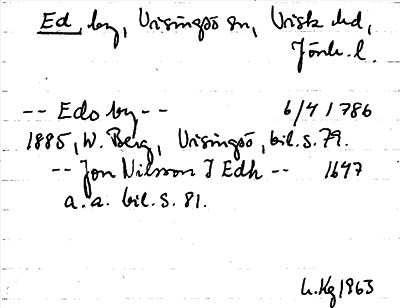 Ed, by, Visingsö sn, Vista hd,
Jönk. l.
-- Edo by -- 6/4 1786
1885, W. Berg, Visingsö, bil. s. 79.
-- Jon Nilsson I Edh -- 1647
a. a. bil. s. 81.
1963